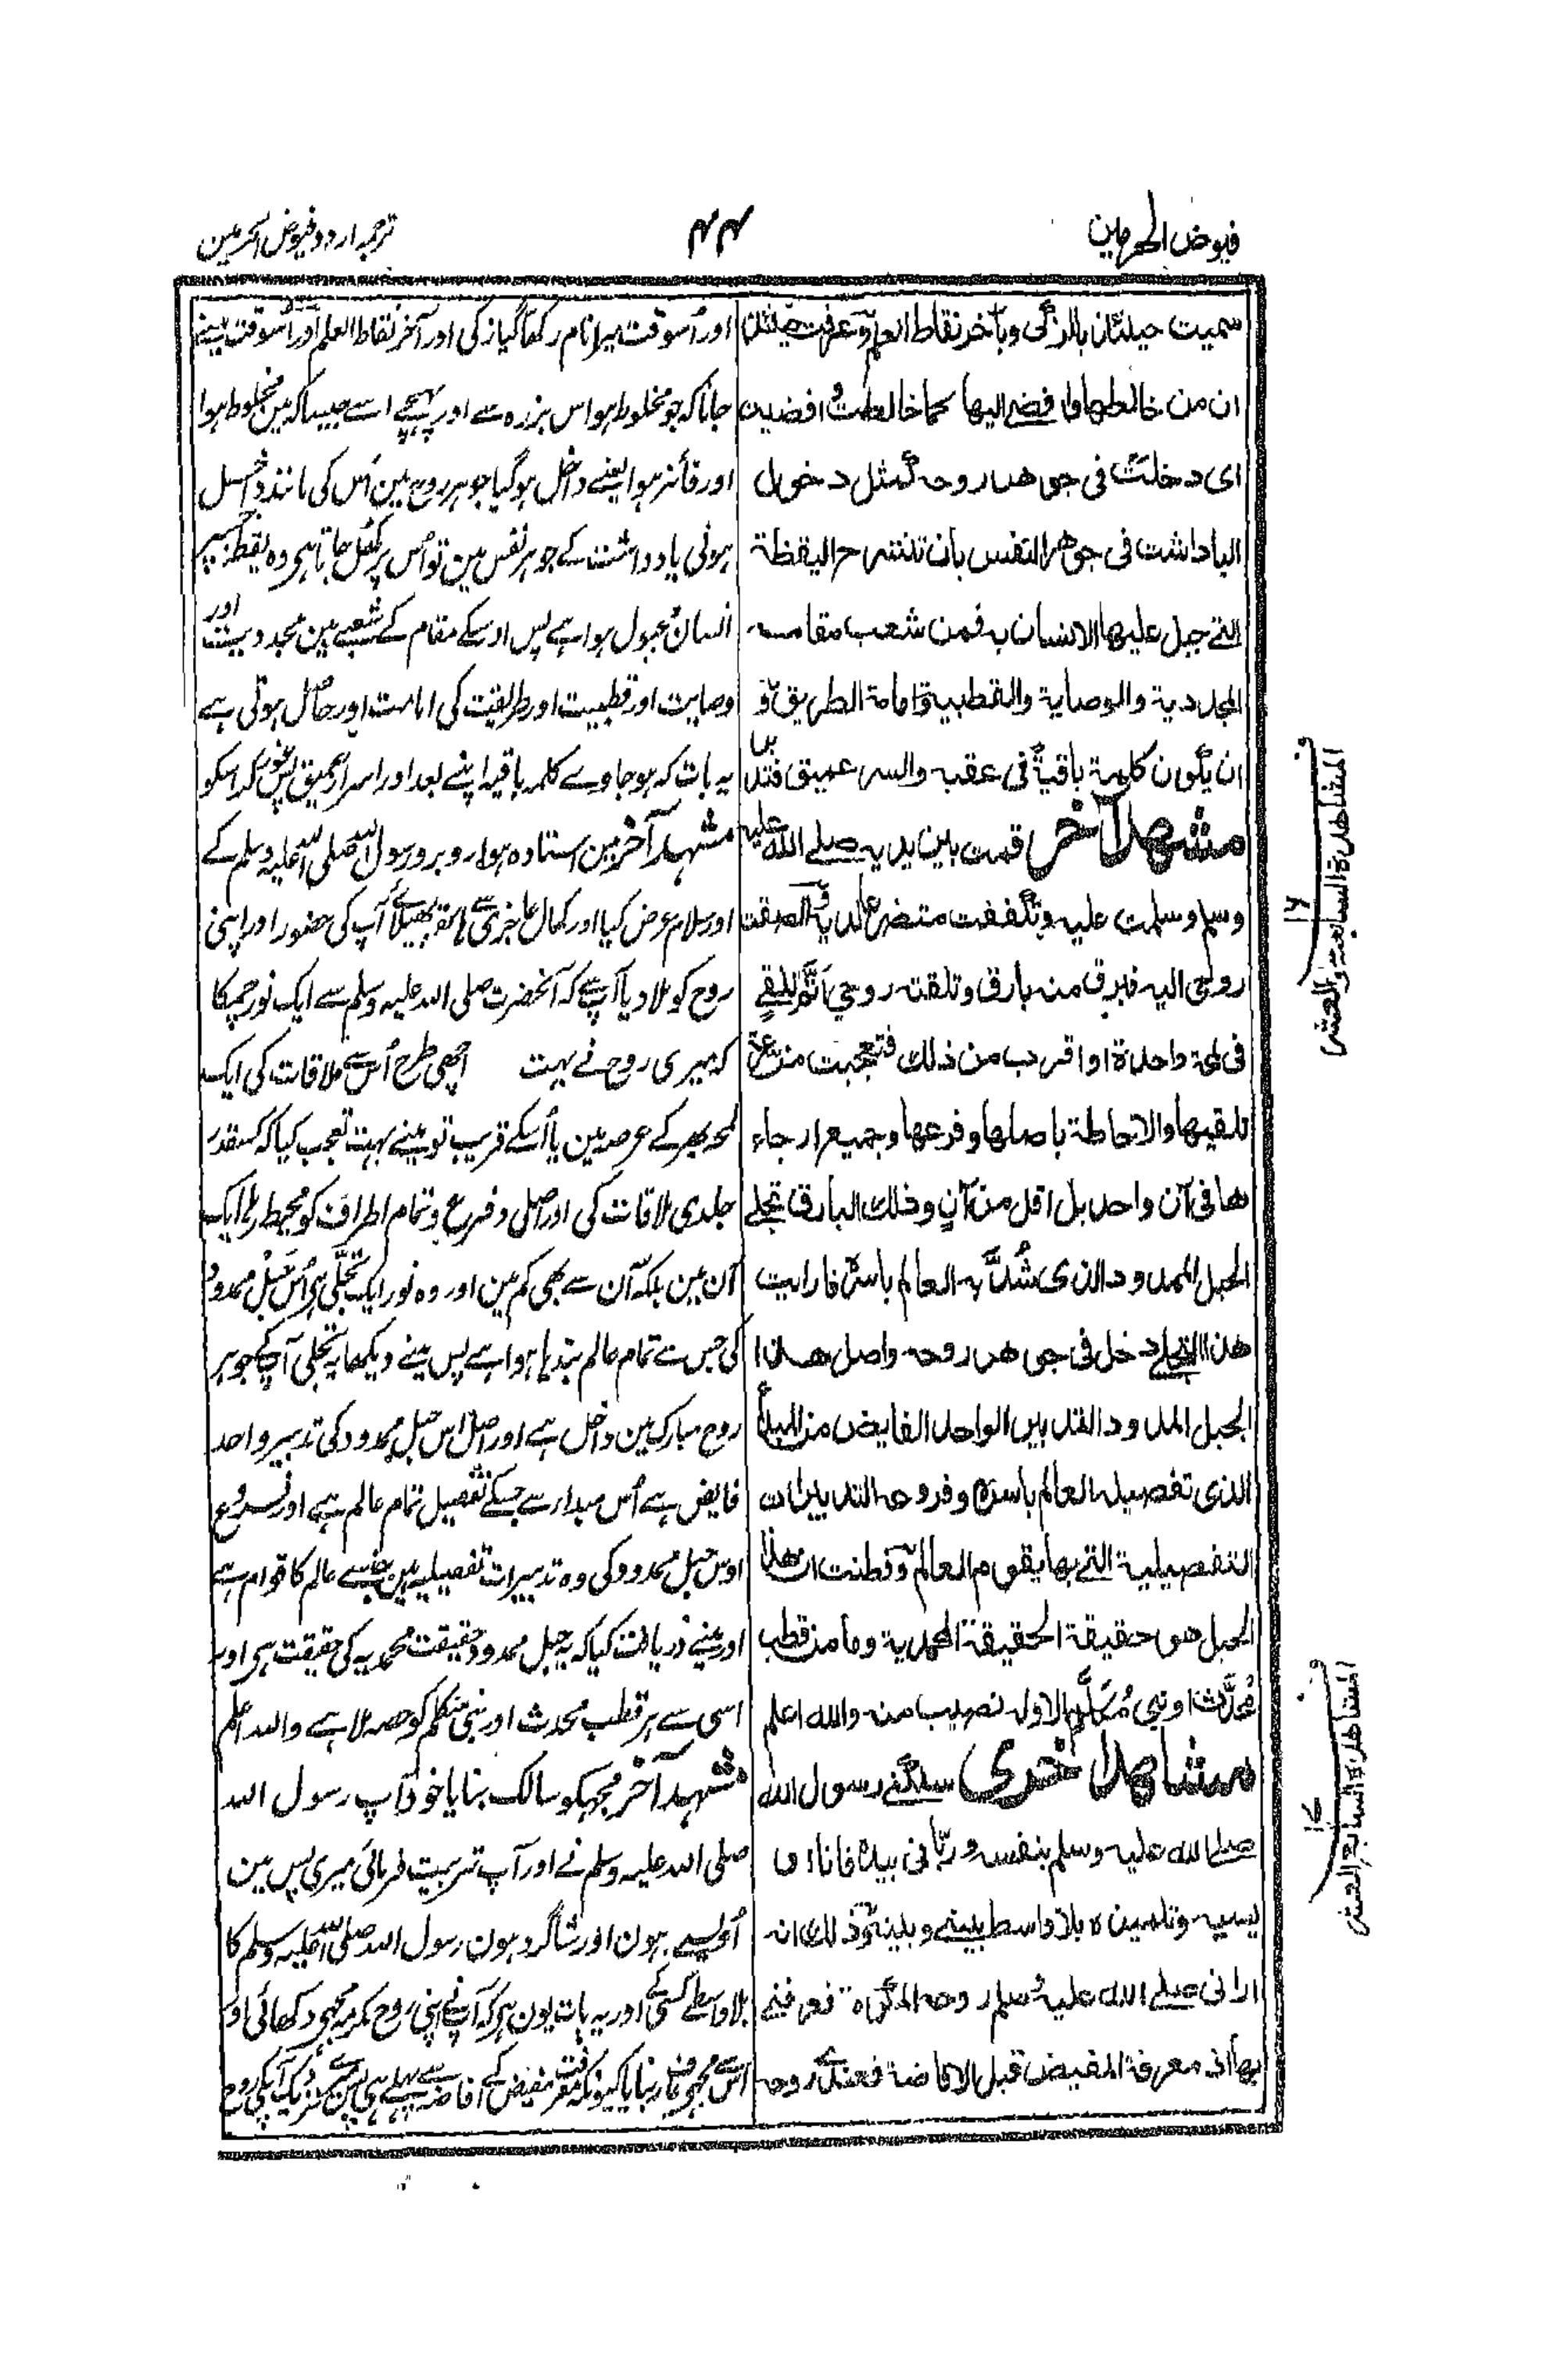 فيوض الحرمين
۴۴
ترجمہ اردو فیوض الحرمین
سميت حينئذ بالزكى وبآخر نقاط العلم وعرفت حينئذ
ان من خالطها وافضى اليها كما خالطتُ وافضيت
اى دخلتْ فى جوهر روحه كمثل دخول
الياداشت فى جوهر النفس بان تنتشرح اليقظة
التى جبل عليها الانسان به فمن شعب مقامه
المجددية والوصاية والقطبية وامامة الطريقة و
ان يكون كلمة باقيةً فى عقبه والسر عميق فتدبر
مشهد آخر قمت بين يديه صلى الله عليه
وسلم وسلمت عليه وتكففت متضرعا لديه والصقت
روحى اليه فبرق منه بارق وتلقته روحي اتم تلقٍ
فى لمحة واحدة او اقرب من ذلك فتعجبت من سرعة
تلقيها والاحاطة باصلها وفرعها وجميع ارجاء
ها فى آن واحد بل اقل من آنٍ وذلك البارق تجلى
الحبل الممدود الذى شُدَّ به العالم باسره فارايت
هذا التجلى دخل فى جوهر روحه واصل هذا
الحبل الممدود التدبير الواحد الفايض من المبدأ
الذى تفصيله العالم باسره وفروعه التدبيرات
التفصيلية التى بها يقوم العالم وفطنت ان هذا
الحبل هو حقيقة الحقيقة المحمدية وما من قطب
مُحدَّث او نبى مُكَلَّم الا وله نصيب منه والله اعلم
مشاهد اخرى سلكنى رسول الله
صلى الله عليه وسلم بنفسه وربّانى بيده فانا او
يسيه وتلميذه بلا واسطة بينى وبينه وذلك انه
ارانى صلى الله عليه وسلم روحه المكرمة فعرفنى
بها اذ معرفة المفيض قبل الافاضة فعندى روحه
اور اُسوقت میرا نام رکھا گیا زکی اور آخر نقاط العلم اور اُسوقت مینے
جانا کہ جو مخلوط ہو اس برزہ سے اور پہنچے اسے جیسا کہ مین مخلوط ہوا
اور فائز ہوا یعنے داخل ہو گیا جوہر روح مین اُس کی مانند داخل
ہونی یادداشت کے جوہر نفس مین تو اُس پر کھل جاتا ہی وہ یقظہ جسپر
انسان مجبول ہوا ہے پس اوسکے مقام کے شعبے مین مجددیت اور
وصایت اور قطبیت اور طریقت کی امامت اور حاصل ہوتی ہے
یہ بات کہ ہو جاوے کلمہ باقیہ اپنے بعد اور اسرار عمیق پس غور کر اسکو
مشہد آخر مین استادہ ہوا روبرو رسول اللہ صلی اللہ علیہ وسلم کے
اور سلام عرض کیا اور کمال عاجزی سے ہاتھ پھیلائے آپ کی حضور اور اپنی
روح کو ملا دیا آپ سے کہ آنحضرت صلی اللہ علیہ وسلم سے ایک نور چمکا
کہ میری روح نے بہت اچھی طرح اُس سے ملاقات کی ایک
لمحہ بھر کے عرصہ مین یا اُسکے قریب تو مینے بہت تعجب کیا کہ کسقدر
جلدی ملاقات کی اور اصل و فرع و تمام اطراف کو محیط ہو ایک
آن مین بلکہ آن سے بھی کم مین اور وہ نور ایک تجلّی ہی اُس حبل ممدود
کی جس سے تمام عالم بندھا ہوا ہے پس مینے دیکھا یہ تجلی آپکے جوہر
روح مبارک مین داخل ہے اور اصل اس حبل ممدود کی تدبیر واحد
فایض ہے اُس مبدا سے جسکے تفصیل تمام عالم ہے اور فروع
اوس حبل ممدود کی وہ تدبیرات تفصیلیہ ہین جنسے عالم کا قوام ہے
اور مینے دریافت کیا کہ یہ حبل ممدود حقیقت محمدیہ کی حقیقت ہی اور
اسی سے ہر قطب محدث اور نبی متکلم کو حصہ ملا ہے واللہ اعلم
مشہد آخر مجہکو سالک بنایا خود آپ رسول اللہ
صلی اللہ علیہ وسلم نے اور آپ تربیت فرمائی میری پس مین
اُویسی ہون اور شاگرد ہون رسول اللہ صلی اللہ علیہ وسلم کا
بلا واسطے کسی کے اور یہ بات یون ہی کہ آپنے اپنی روح مکرمہ مجہی دکھائی اور
اُس سے مجہی عارف بنایا کیونکہ معرفت مفیض کے افاضہ سے پہلے ہی پس میرے نزدیک آپکی روح
المشاهدة السابعة والعشر
المشاهدة السابع العشر